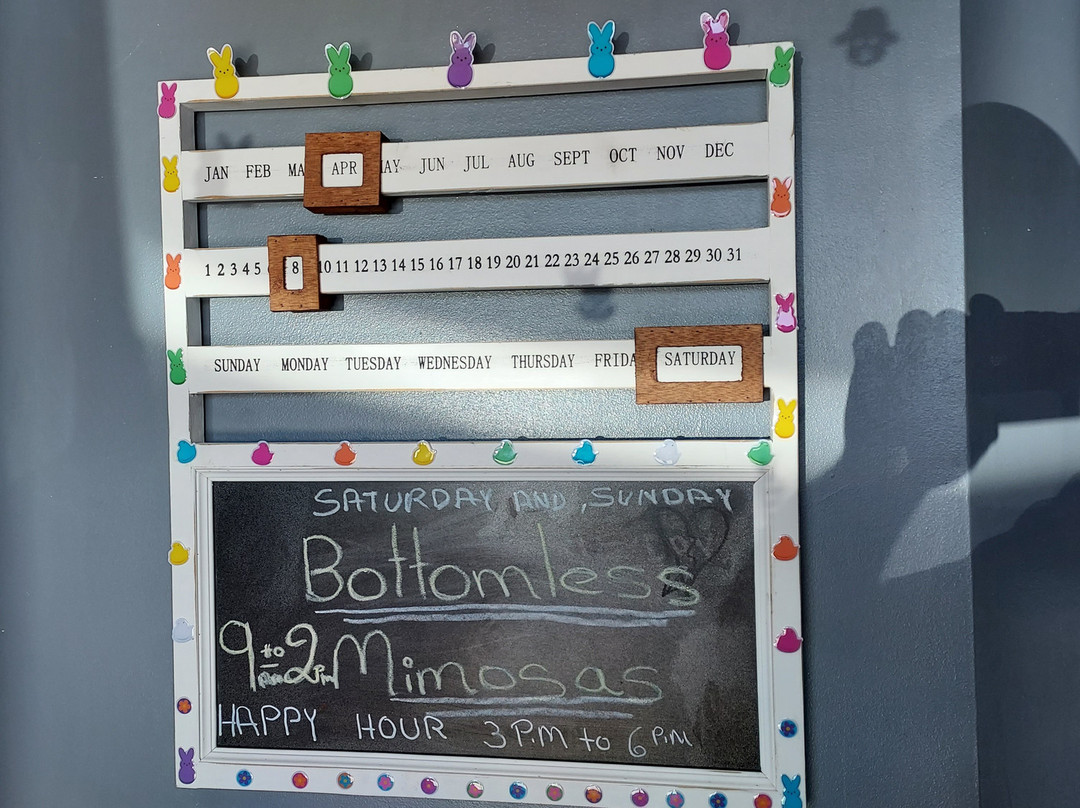 JAN FEB MA APR MAY JUN JUL AUG SEPT OCT NOV DEC
1 2 3 4 5 8 10 11 12 13 14 15 16 17 18 19 20 21 22 23 24 25 26 27 28 29 30 31
SUNDAY MONDAY TUESDAY WEDNESDAY THURSDAY FRIDA SATURDAY
SATURDAY AND SUNDAY
Bottomless
9 to 2 Pm Mimosas
HAPPY HOUR 3 P.M to 6 P.M